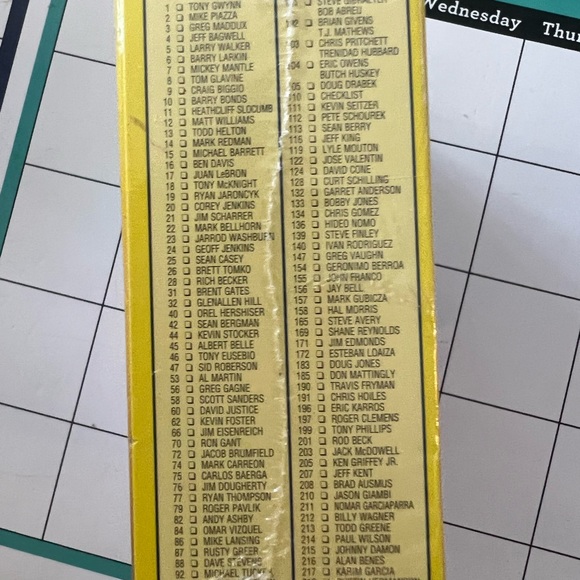 Wednesday Thur
1 ☐ TONY GWYNN
2 ☐ MIKE PIAZZA
3 ☐ GREG MADDUX
4 ☐ JEFF BAGWELL
5 ☐ LARRY WALKER
6 ☐ BARRY LARKIN
7 ☐ MICKEY MANTLE
8 ☐ TOM GLAVINE
9 ☐ CRAIG BIGGIO
10 ☐ BARRY BONDS
11 ☐ HEATHCLIFF SLOCUMB
12 ☐ MATT WILLIAMS
13 ☐ TODD HELTON
14 ☐ MARK REDMAN
15 ☐ MICHAEL BARRETT
16 ☐ BEN DAVIS
17 ☐ JUAN LeBRON
18 ☐ TONY McKNIGHT
19 ☐ RYAN JARONCYK
20 ☐ COREY JENKINS
21 ☐ JIM SCHARRER
22 ☐ MARK BELLHORN
23 ☐ JARROD WASHBURN
24 ☐ GEOFF JENKINS
25 ☐ SEAN CASEY
26 ☐ BRETT TOMKO
28 ☐ RICH BECKER
31 ☐ BRENT GATES
32 ☐ GLENALLEN HILL
40 ☐ OREL HERSHISER
42 ☐ SEAN BERGMAN
44 ☐ KEVIN STOCKER
45 ☐ ALBERT BELLE
46 ☐ TONY EUSEBIO
47 ☐ SID ROBERSON
53 ☐ AL MARTIN
56 ☐ GREG GAGNE
58 ☐ SCOTT SANDERS
60 ☐ DAVID JUSTICE
62 ☐ KEVIN FOSTER
66 ☐ JIM EISENREICH
70 ☐ RON GANT
72 ☐ JACOB BRUMFIELD
74 ☐ MARK CARREON
75 ☐ CARLOS BAERGA
76 ☐ JIM DOUGHERTY
77 ☐ RYAN THOMPSON
79 ☐ ROGER PAVLIK
82 ☐ ANDY ASHBY
84 ☐ OMAR VIZQUEL
86 ☐ MIKE LANSING
87 ☐ RUSTY GREER
88 ☐ DAVE STEVENS
92 ☐ MICHAEL TUCKER
☐ STEVE GIBRALTER
BOB ABREU
☐ BRIAN GIVENS
T.J. MATHEWS
☐ CHRIS PRITCHETT
TRENIDAD HUBBARD
104 ☐ ERIC OWENS
BUTCH HUSKEY
105 ☐ DOUG DRABEK
110 ☐ CHECKLIST
111 ☐ KEVIN SEITZER
112 ☐ PETE SCHOUREK
113 ☐ SEAN BERRY
116 ☐ JEFF KING
119 ☐ LYLE MOUTON
122 ☐ JOSE VALENTIN
124 ☐ DAVID CONE
128 ☐ CURT SCHILLING
132 ☐ GARRET ANDERSON
133 ☐ BOBBY JONES
134 ☐ CHRIS GOMEZ
136 ☐ HIDEO NOMO
139 ☐ STEVE FINLEY
140 ☐ IVAN RODRIGUEZ
147 ☐ GREG VAUGHN
154 ☐ GERONIMO BERROA
155 ☐ JOHN FRANCO
156 ☐ JAY BELL
157 ☐ MARK GUBICZA
158 ☐ HAL MORRIS
165 ☐ STEVE AVERY
169 ☐ SHANE REYNOLDS
171 ☐ JIM EDMONDS
172 ☐ ESTEBAN LOAIZA
183 ☐ DOUG JONES
185 ☐ DON MATTINGLY
190 ☐ TRAVIS FRYMAN
191 ☐ CHRIS HOILES
196 ☐ ERIC KARROS
197 ☐ ROGER CLEMENS
199 ☐ TONY PHILLIPS
201 ☐ ROD BECK
203 ☐ JACK McDOWELL
205 ☐ KEN GRIFFEY JR.
207 ☐ JEFF KENT
208 ☐ BRAD AUSMUS
210 ☐ JASON GIAMBI
211 ☐ NOMAR GARCIAPARRA
212 ☐ BILLY WAGNER
213 ☐ TODD GREENE
214 ☐ PAUL WILSON
215 ☐ JOHNNY DAMON
216 ☐ ALAN BENES
217 ☐ KARIM GARCIA